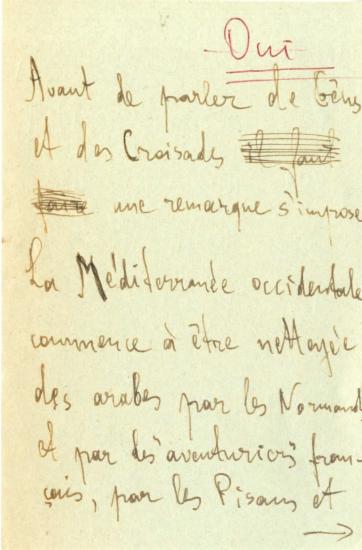 Oui
Avant de parler de Gênes
et des Croisades il faut
faire une remarque s'impose
La Méditerranée occidentale
commence à être nettoyée
des arabes par les Normands
et par des "aventuriers" fran-
çais, par les Pisans et
→